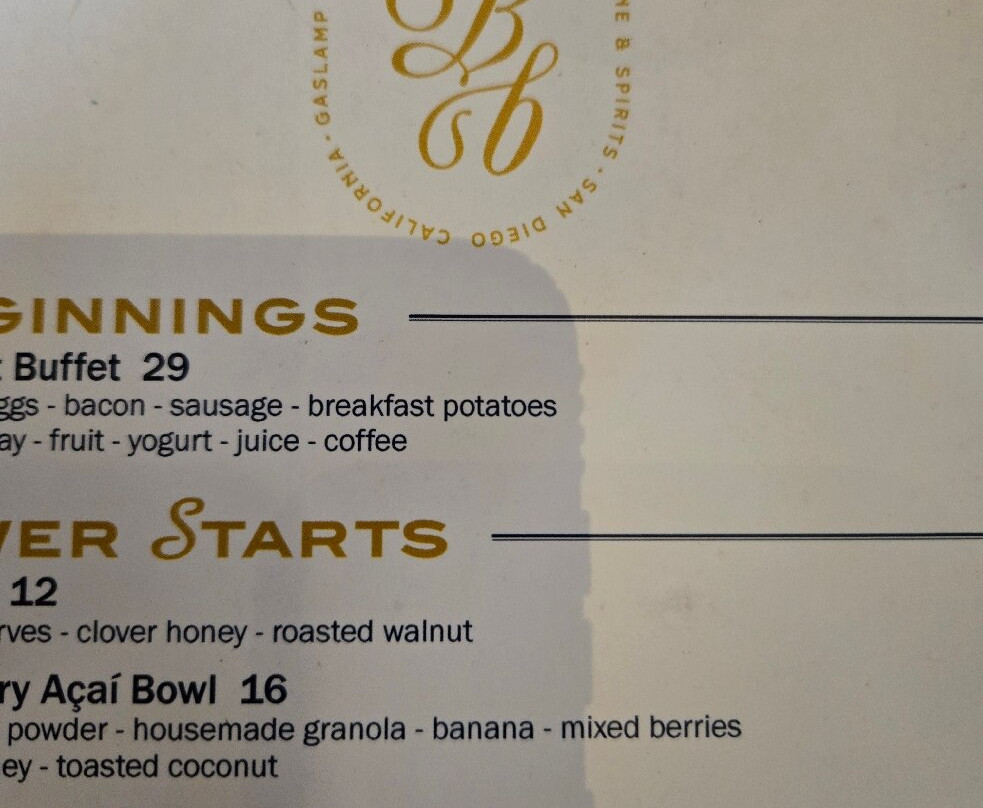 GASLAMP
& SPIRITS · SAN DIEGO CALIFORNIA ·
GINNINGS
Buffet 29
ggs - bacon - sausage - breakfast potatoes
ay - fruit - yogurt - juice - coffee
VER STARTS
12
rves - clover honey - roasted walnut
ry Açaí Bowl 16
powder - housemade granola - banana - mixed berries
ey - toasted coconut